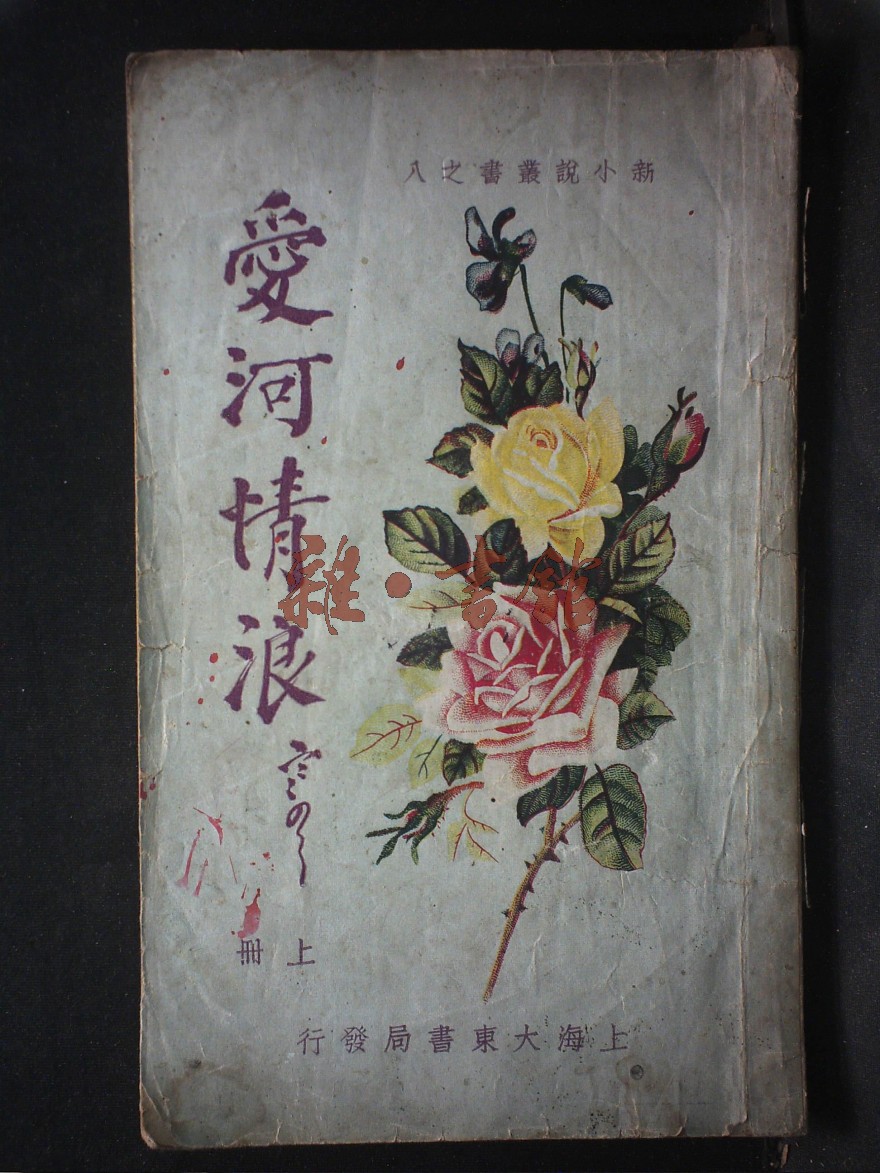 新小說叢書之八
愛河情浪
上冊
上海大東書局發行
雜·書館